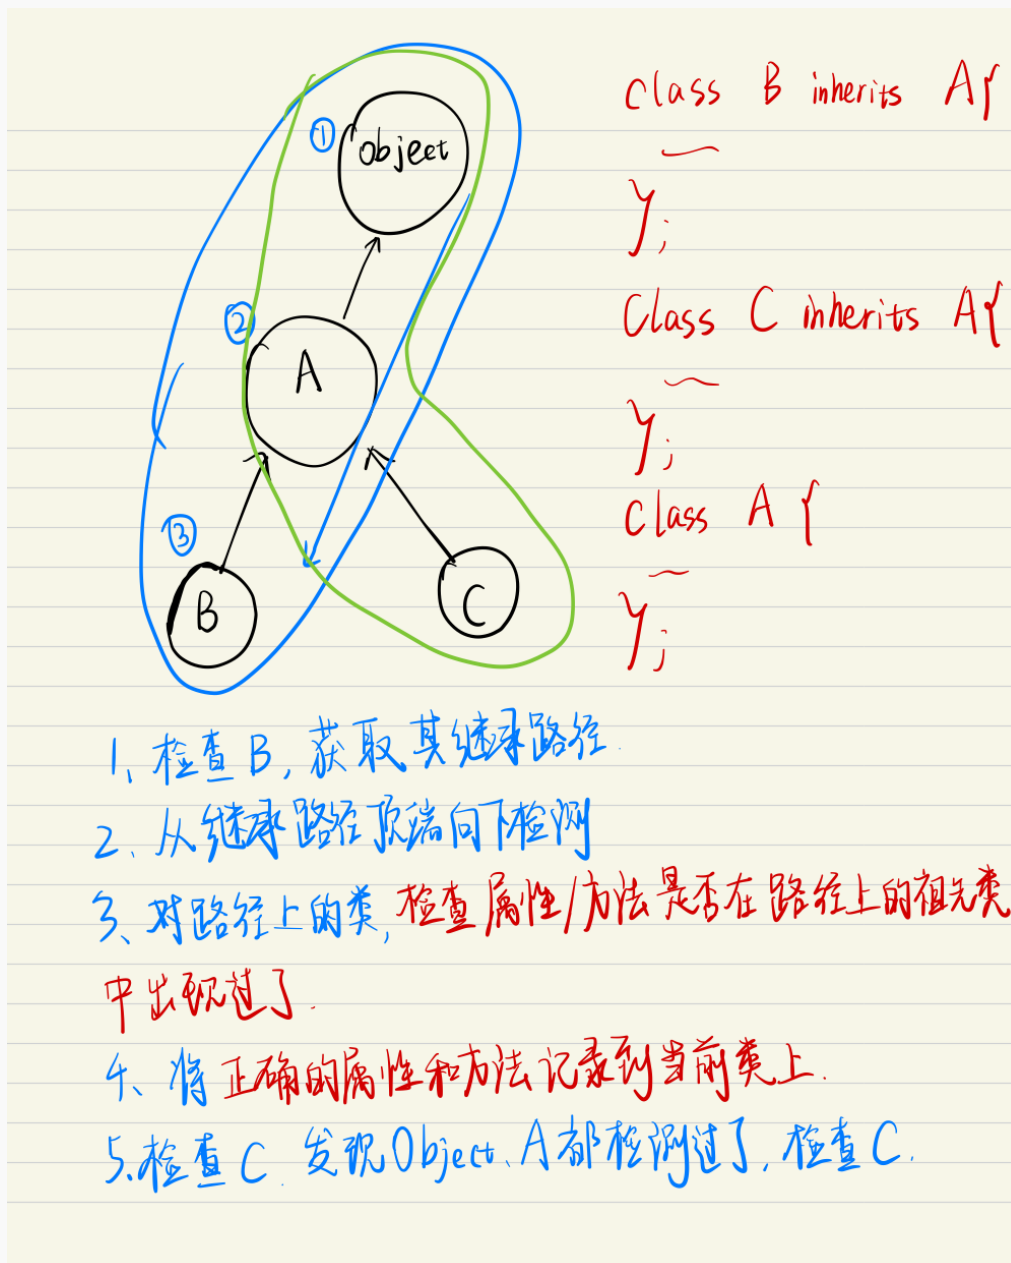 ①
object
②
A
③
B
C
class B inherits A{
};
Class C inherits A{
};
class A {
};
1、检查B, 获取其继承路径.
2、从继承路径顶端向下检测
3、对路径上的类, 检查属性/方法是否在路径上的祖先类
中出现过了.
4、将正确的属性和方法记录到当前类上.
5.检查C. 发现Object、A都检测过了, 检查C.